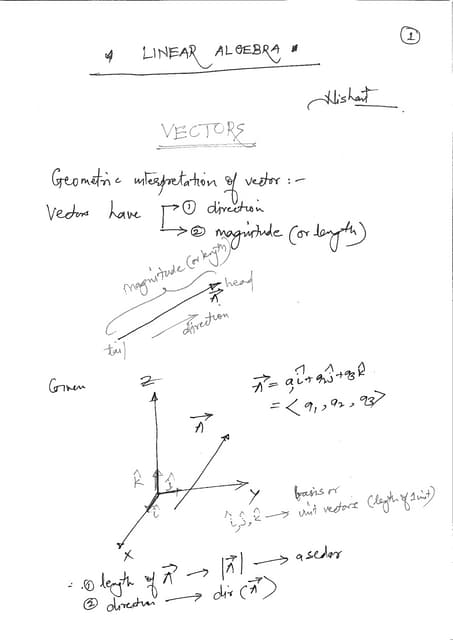 ①
* LINEAR ALGEBRA *
Nishant
VECTORS
Geometric interpretation of vector :-
Vectors have → ① direction
→ ② magnitude (or length)
magnitude (or length)
head
A⃗
direction
tail
Given
Z
A⃗
A⃗ = a₁î + a₂ĵ + a₃k̂
= <a₁, a₂, a₃>
k̂
ĵ
î
Y
X
basis or
î, ĵ, k̂ → unit vectors (length of 1 unit)
∴ ① length of A⃗ → |A⃗| → a scalar
② direction → dir (A⃗)